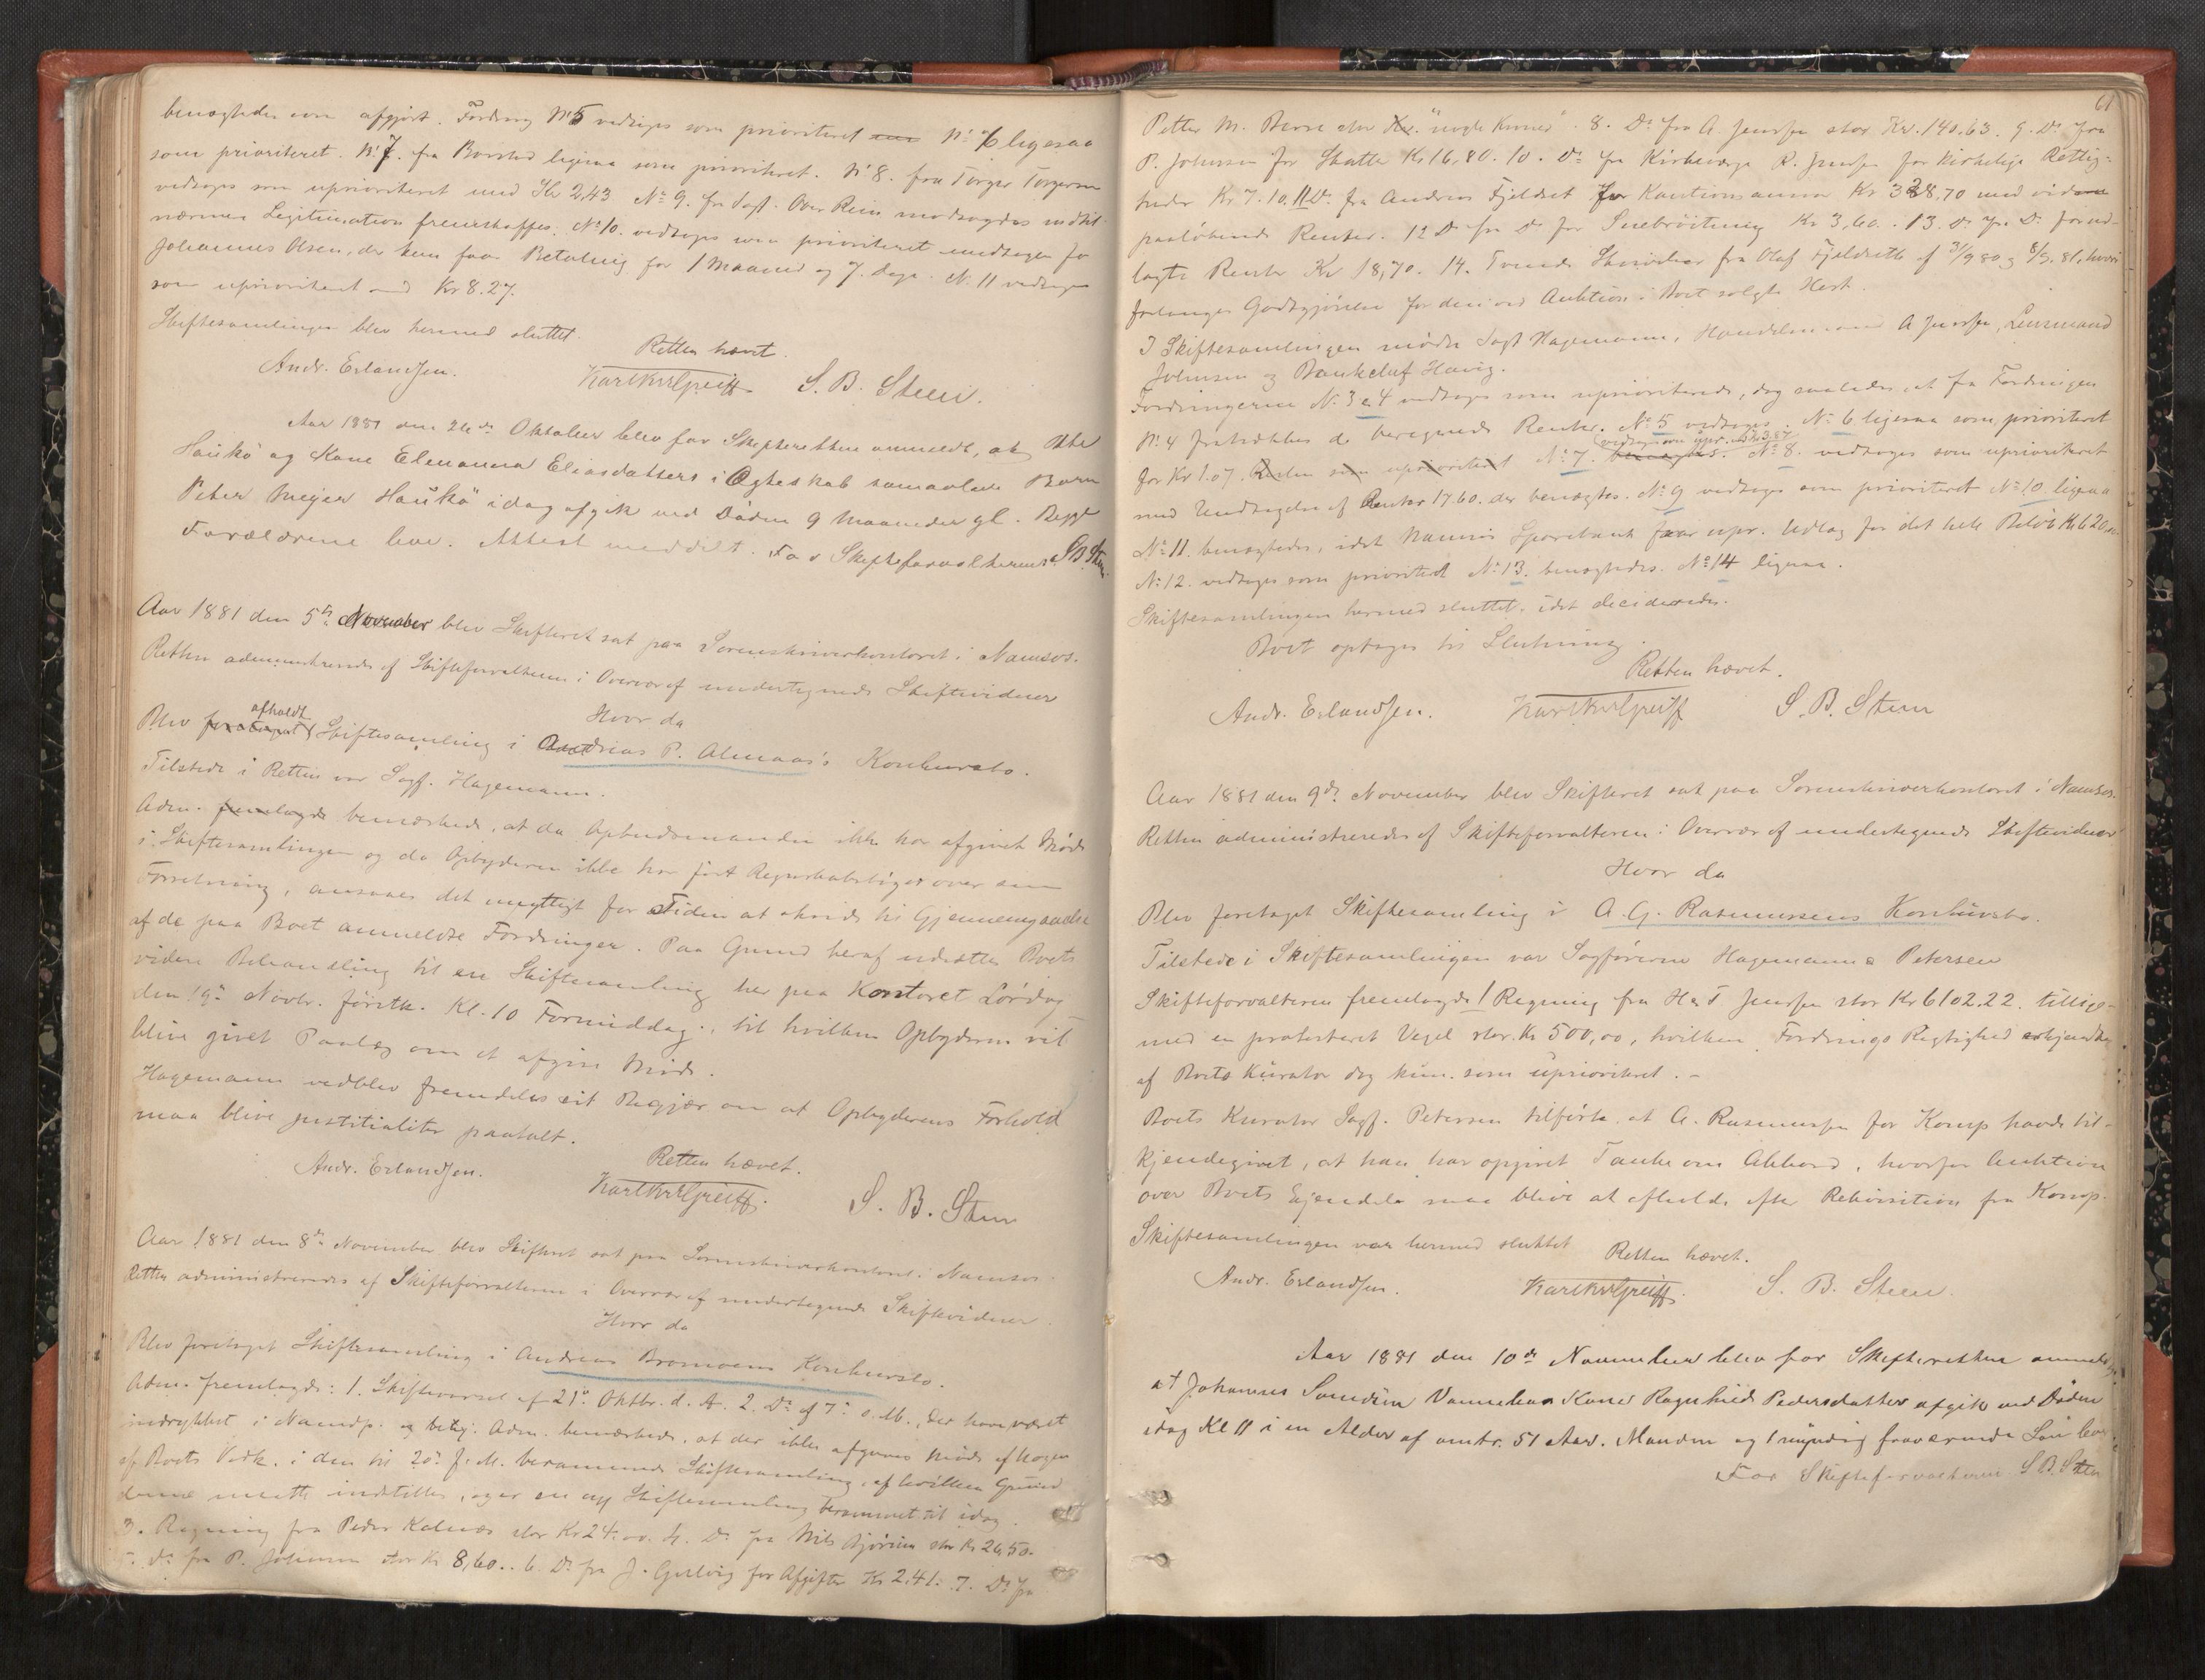 benægtedes som afgjort. Fordring No 5 vedtages som prioriteret No 6 ligesaa
som prioriteret. No 7. fra Borstad ligesaa som prioriteret. No 8. fra Torger Torgersen
vedtages som uprioriteret med Kr 2,43 No 9. fra Sagf. Over Rein modsagdes indtil
nærmere Legitimation fremskaffes. No 10. vedtages som prioriteret undtagen for
Johannes Olsen, der kun faar Betaling for 1 Maaned og 7 Dage. No 11 vedtages
som uprioriteret med Kr 8.27.
Skiftesamlingen blev hermed sluttet.
Retten hævet.
Andr. Erlandsen. S. B. Steen.
Aar 1881 den 26de Oktober blev for Skifteretten anmeldt, at
Haukø og Kone Elenanna Eliasdatters i Ægteskab sammavlede Barn
Peter Meyer Haukø idag afgik ved Døden 9 Maaneder gl. Begge
Forældrene leve. Attest meddelt. For Skifteforvalteren S B Steen
Aar 1881 den 5te November blev Skifteret sat paa Sorenskriverkontoret i Namsos.
Retten administreredes af Skifteforvalteren i Overvær af undertegnede Skiftevidner
Hvor da
Blev foretaget afholdt Skiftesamling i Andreas P. Almaas's Konkursbo.
Tilstede i Retten var Sagf. Hagemann.
Adm. fremlagde bemærkede, at da Opbudsmanden ikke har afgivet Møde
i Skiftesamlingen og da Opbyderen ikke har ført Regnskabsbøger over sin
Forretning, ansaaes det unyttigt for Tiden at skride til Gjennemgaaelse
af de paa Boet anmeldte Fordringer. Paa Grund heraf udsattes Boets
videre Behandling til en Skiftesamling her paa Kontoret Lørdag
den 19de Novbr. førstk. Kl. 10 Formiddag, til hvilken Opbyderen vil
blive givet Paalæg om at afgive Møde.
Hagemann vedblev fremdeles sit Begjær om at Opbyderens Forhold
maa blive justitialiter paatalt.
Retten hævet.
Andr. Erlandsen. S. B. Steen
Aar 1881 den 8de November blev Skifteret sat paa Sorenskriverkontoret i Namsos.
Retten administreredes af Skifteforvalteren i Overvær af undertegnede Skiftevidner
Hvor da
Blev foretaget Skiftesamling i Andreas Bromoens Konkursbo.
Adm. fremlagde: 1. Skiftevarsel af 21de Oktbr. d. A. 2. Do af 7de s. M., der have været
indrykket i Namdp. og bekj. Adm. bemærkede, at der ikke afgaves Møde af nogen
af Boets Vedk. i den til 20de f. M. berammede Skiftesamling, af hvilken Grund
denne maatte indstilles, og er en ny Skiftesamling berammet til idag.
3. Regning fra Peder Kalnæs stor Kr 24.00. 4. Do fra Nils Bjørum stor Kr 26,50.
5. Do fra P. Johnsen stor Kr 8,60. 6. Do fra J. Gulvig for Afgifter Kr 2,41. 7. Do fra
61
Petter M. Barø stor Kr. "nogle Kroner". 8. Do fra A. Jenssen stor Kr. 140.63. 9. Do fra
P. Johnsen for Skatter Kr 16,80. 10. Do fra Kirkeværge R. Jenssen for kirkelige Rettig-
heder Kr 7.10. 11 Do. fra Andreas Fjeldset for Kautionsansvar Kr 328,70 med vidre
paaløbende Renter. 12 Do fra Do for Snebrøitning Kr 3,60. 13. Do fra Do for ud-
lagte Renter Kr 18,70. 14. Tvende Skrivelser fra Olaf Fjeldseth af 3/9 80 og 8/9 81, hvori
forlanges Godtgjørelse for den ved Auktion i Boet solgte Hest.
I Skiftesamlingen mødte Sagf Hagemann, Handelsmand A Jenssen, Lensmand
Johnsen og Bankchef Havig.
Fordringerne No 3 & 4 vedtages som uprioriterede, dog saaledes at fra Fordringen
No 4 fratrækkes de beregnede Renter. No 5 vedtages. No 6 ligesaa som prioriteret
for Kr 1.07. Resten som uprioriteret No 7. benægtes. vedtages som upr. No 8. vedtages som uprioriteret
med Undtagelse af Renter 17.60. der benægtes. No 9 vedtages som prioriteret No 10 ligesaa
No 11. benægtedes, idet Namsos Sparebank faar upr. Udlæg for det hele Beløb Kr 620
No 12. vedtages som prioriteret No 13. benægtedes. No 14 ligesaa.
Skiftesamlingen hermed sluttet, idet decideredes.
Boet optages til Slutning.
Retten hævet.
Andr. Erlandsen. S. B. Steen
Aar 1881 den 9de November blev Skifteret sat paa Sorenskriverkontoret i Namsos.
Retten administreredes af Skifteforvalteren i Overvær af undertegnede Skiftevidner
Hvor da
Blev foretaget Skiftesamling i A. G. Rasmussens Konkursbo.
Tilstede i Skiftesamlingen var Sagførerne Hagemann & Petersen
Skifteforvalteren fremlagde 1 Regning fra H & T. Jenssen stor Kr 6102.22. tillige-
med en protesteret Vexel stor Kr 500,00, hvilken Fordrings Rigtighed erkjendtes
af Boets Kurator dog kun som uprioriteret. -
Boets Kurator Sagf. Petersen tilførte at A. Rasmussen for Komp havde til-
kjendegivet, at han har opgivet Tanke om Akkord, hvorfor Auktion
over Boets Eiendele maa blive at afholde efter Rekvisition fra Komp.
Skiftesamlingen var hermed sluttet Retten hævet.
Andr. Erlandsen. S. B. Steen.
Aar 1881 den 10de November blev for Skifteretten anmeldt
at Johannes Kone Ragnhild Pedersdatter afgik ved Døden
idag Kl 11 i en Alder af omtr. 51 Aar. Manden og 1 myndig fraværende Søn lever
For Skifteforvalteren S B. Steen